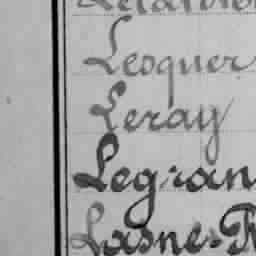 Lesquer
Leray
Legran
Lasne-F